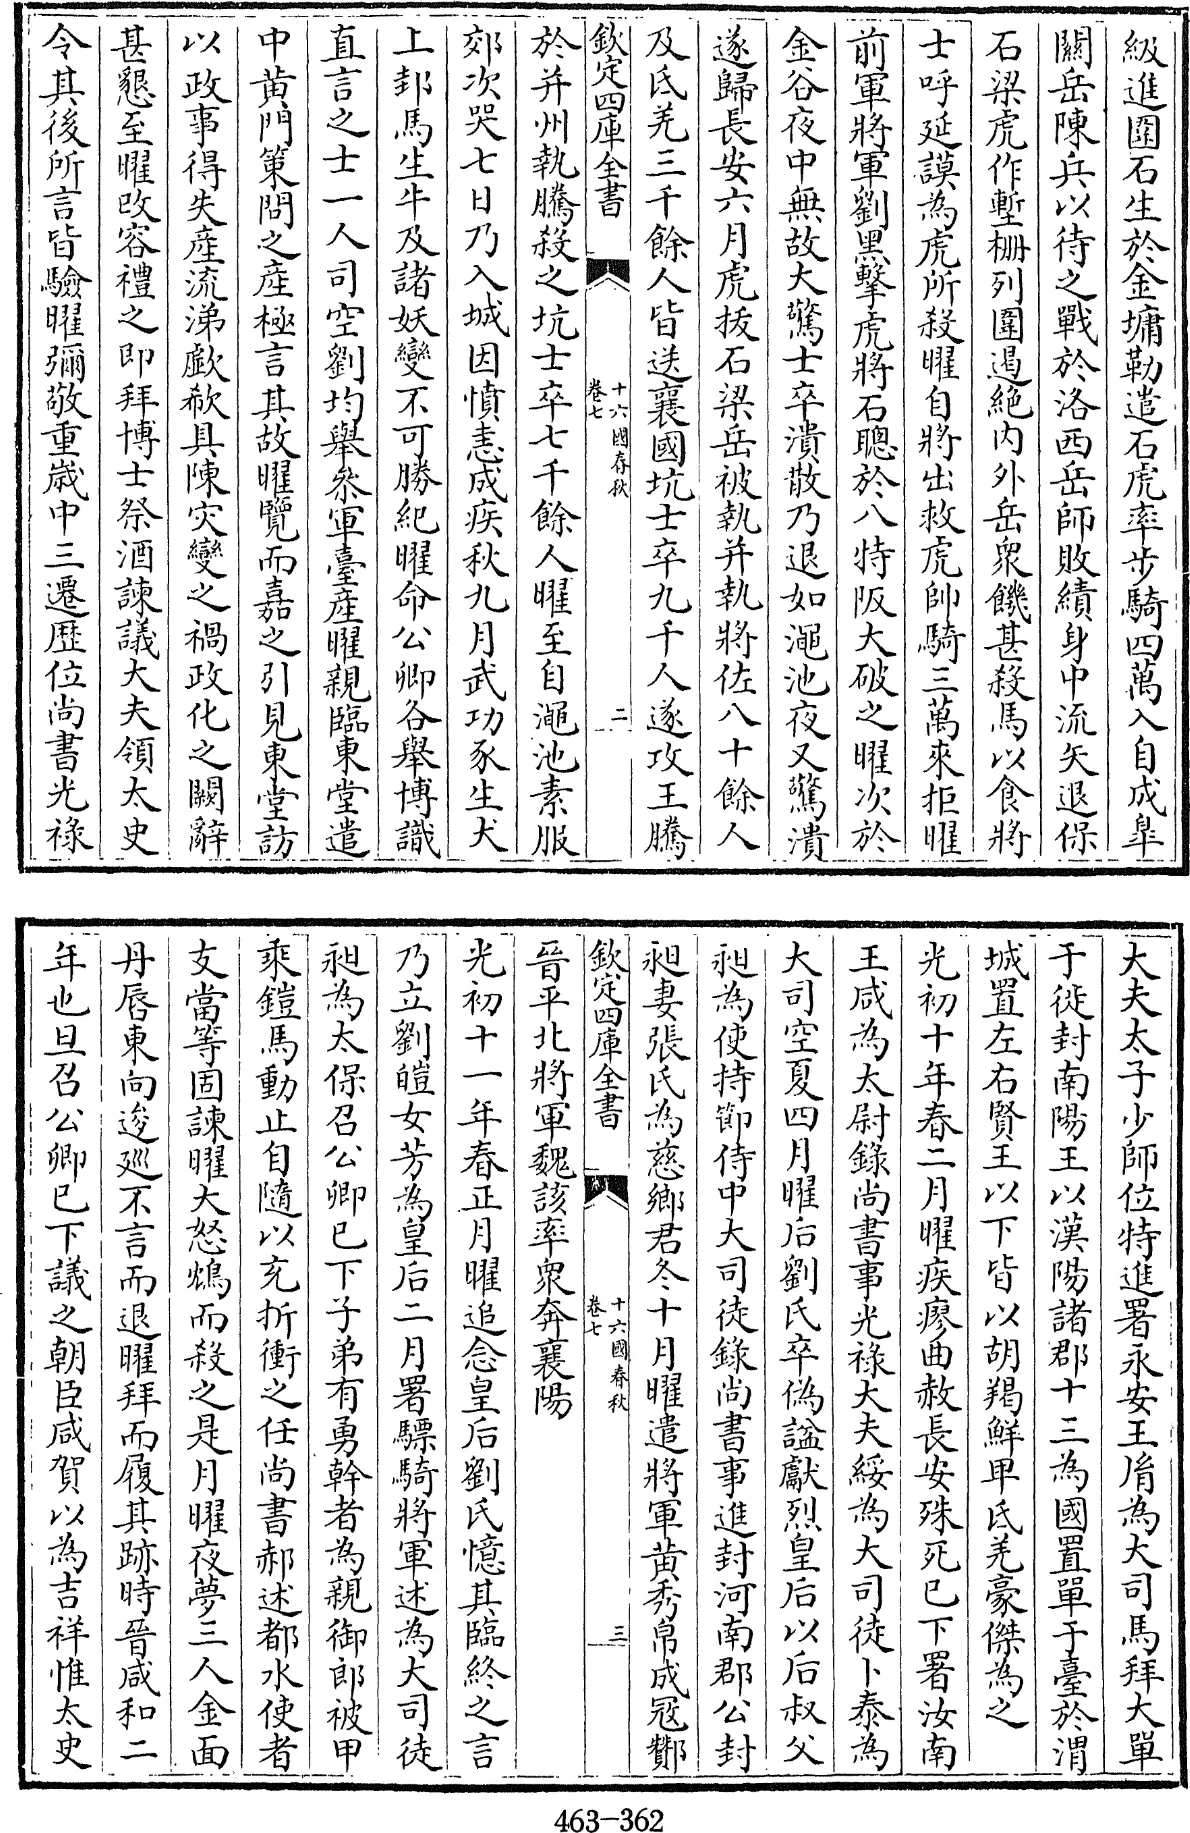 級進圍石生於金墉勒遣石虎率步騎四萬入自成臯
關岳陳兵以待之戰於洛西岳師敗績身中流矢退保
石梁虎作塹柵列圍遏絶内外岳衆饑甚殺馬以食將
士呼延謨為虎所殺曜自將出救虎帥騎三萬來拒曜
前軍將軍劉黑擊虎將石聰於八特阪大破之曜次於
金谷夜中無故大驚士卒潰散乃退如澠池夜又驚潰
遂歸長安六月虎拔石梁岳被執并執將佐八十餘人
及氐羌三千餘人皆送襄國坑士卒九千人遂攻王騰
欽定四庫全書
十六國春秋
卷七
二
於并州執騰殺之坑士卒七千餘人曜至自澠池素服
郊次哭七日乃入城因憤恚成疾秋九月武功豕生犬
上邽馬生牛及諸妖變不可勝紀曜命公卿各舉博識
直言之士一人司空劉均舉叅軍臺産曜親臨東堂遣
中黄門策問之産極言其故曜覽而嘉之引見東堂訪
以政事得失産流涕歔欷具陳灾變之禍政化之闕辭
甚懇至曜改容禮之即拜博士祭酒諫議大夫領太史
令其後所言皆驗曜彌敬重歳中三遷歴位尚書光禄
大夫太子少師位特進署永安王胥為大司馬拜大單
于徙封南陽王以漢陽諸郡十三為國置單于臺於渭
城置左右賢王以下皆以胡羯鮮卑氐羌豪傑為之
光初十年春二月曜疾瘳曲赦長安殊死已下署汝南
王咸為太尉錄尚書事光禄大夫綏為大司徒卜泰為
大司空夏四月曜后劉氏卒偽諡獻烈皇后以后叔父
昶為使持節侍中大司徒錄尚書事進封河南郡公封
昶妻張氏為慈鄉君冬十月曜遣將軍黄秀帛成冦酇
欽定四庫全書
十六國春秋
卷七
三
晉平北將軍魏該率衆奔襄陽
光初十一年春正月曜追念皇后劉氏憶其臨終之言
乃立劉皚女芳為皇后二月署驃騎將軍述為大司徒
昶為太保召公卿已下子弟有勇幹者為親御郎被甲
乘鎧馬動止自隨以充折衝之任尚書郝述都水使者
支當等固諫曜大怒鴆而殺之是月曜夜夢三人金面
丹唇東向逡廵不言而退曜拜而履其跡時晉咸和二
年也旦召公卿已下議之朝臣咸賀以為吉祥惟太史
463-362